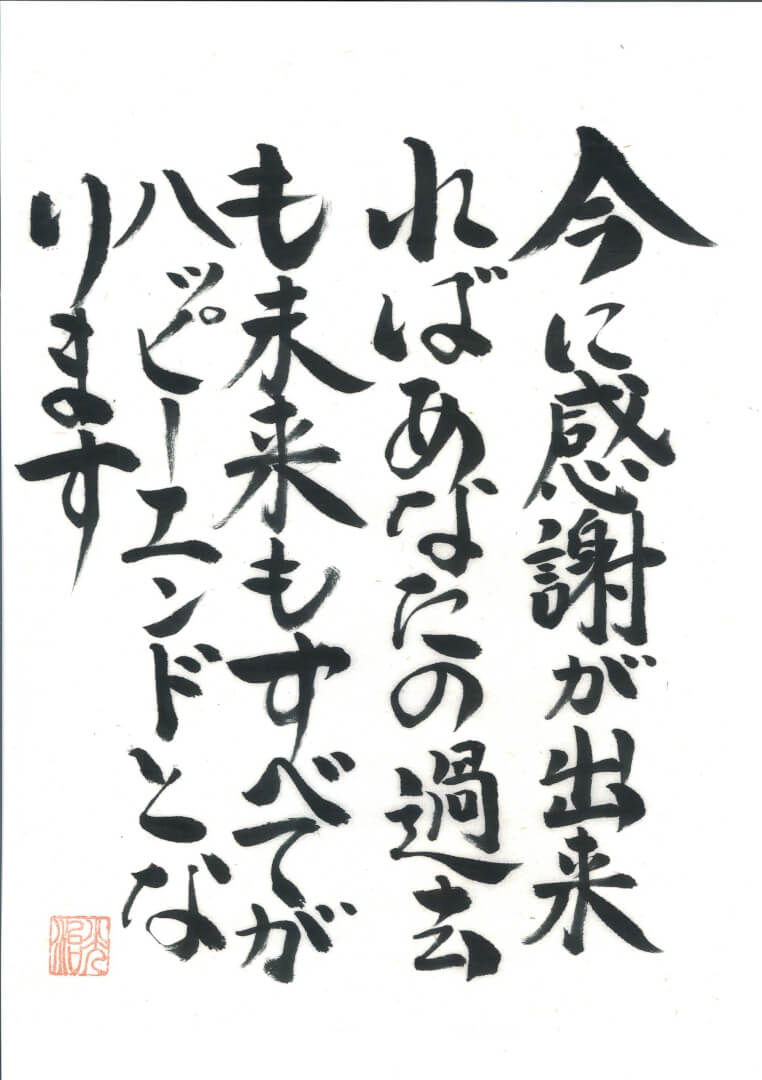 今に感謝が出来
ればあなたの過去
も未来もすべてが
ハッピーエンドとな
ります